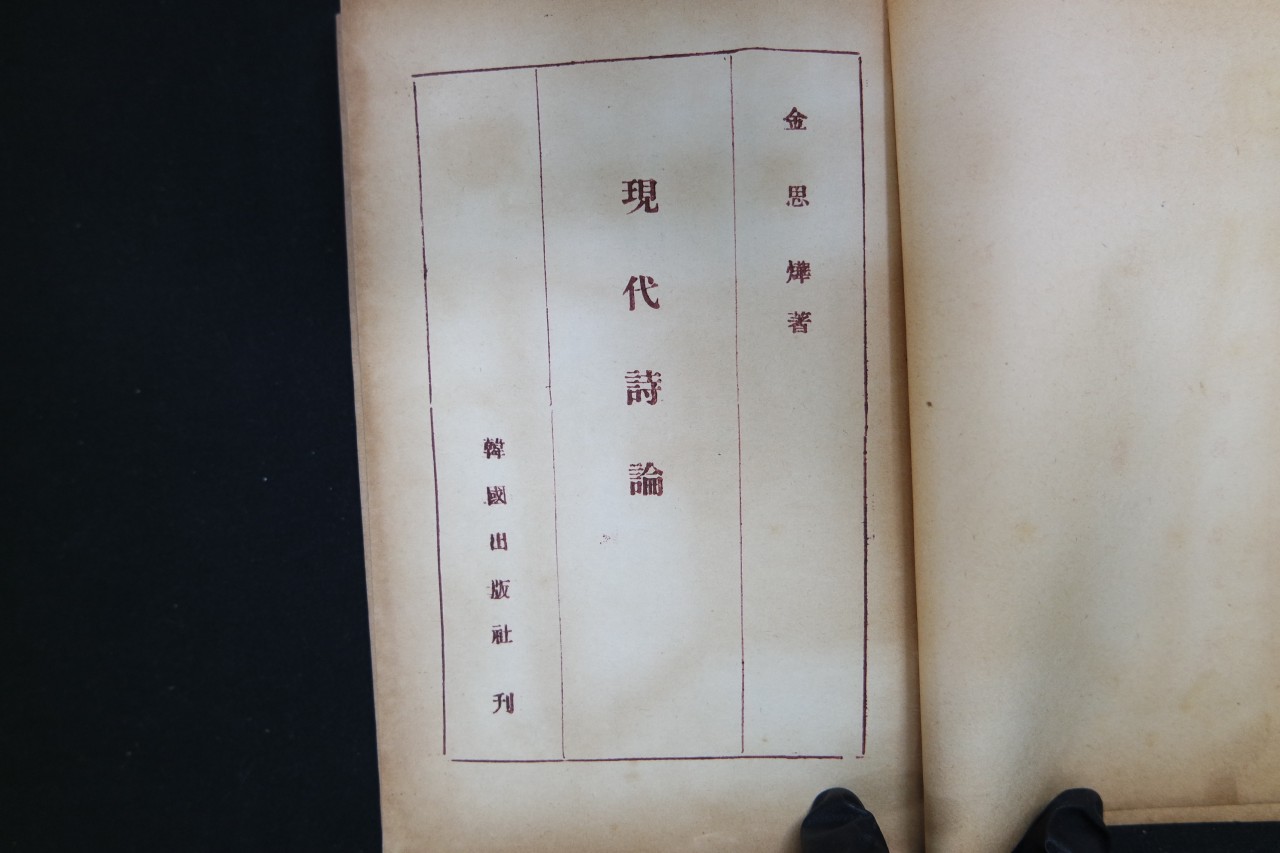 金思燁著
現代詩論
韓國出版社 刊